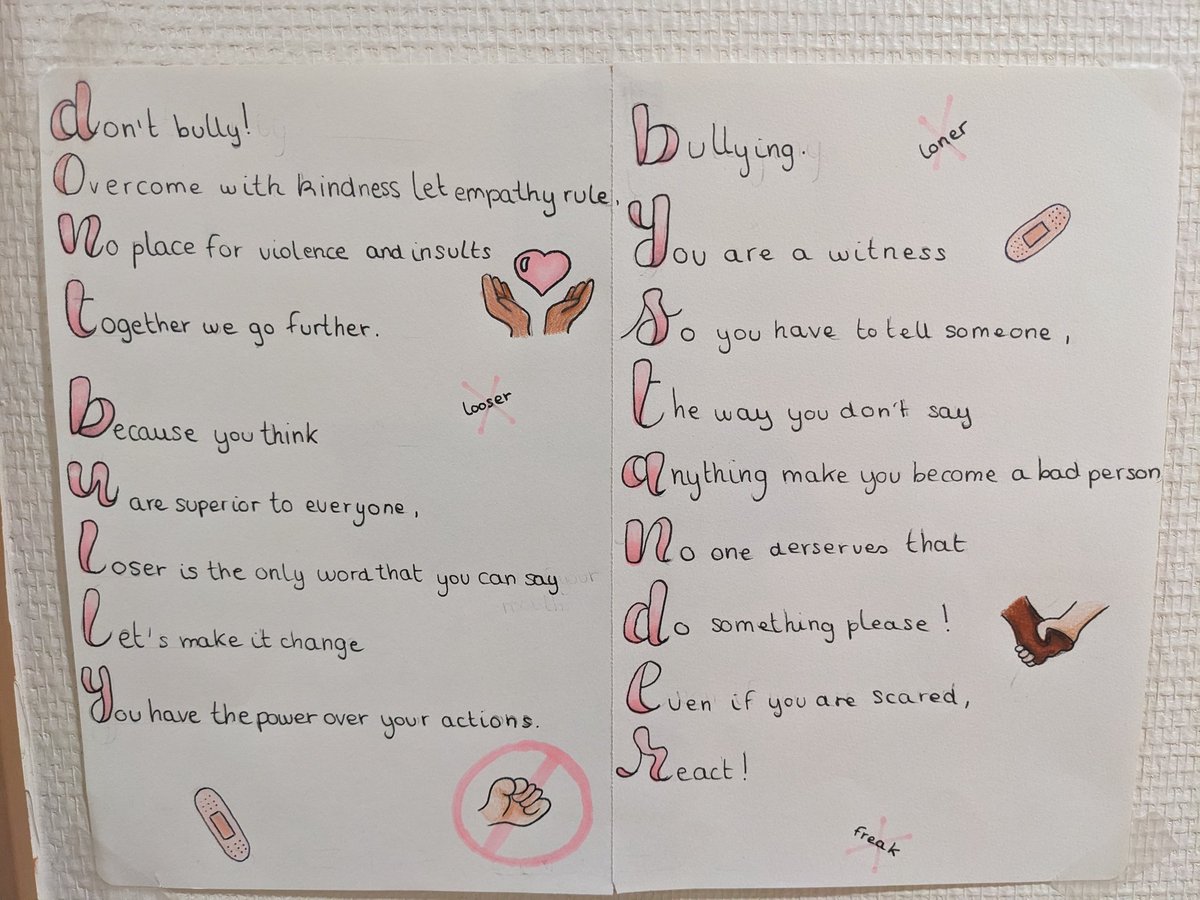 don't bully!
Overcome with kindness let empathy rule,
No place for violence and insults
together we go further.
because you think
u are superior to everyone,
Loser is the only word that you can say
Let's make it change
You have the power over your actions.
looser
bullying.
You are a witness
So you have to tell someone,
the way you don't say
anything make you become a bad person
No one derserves that
do something please!
even if you are scared,
react!
loner
freak